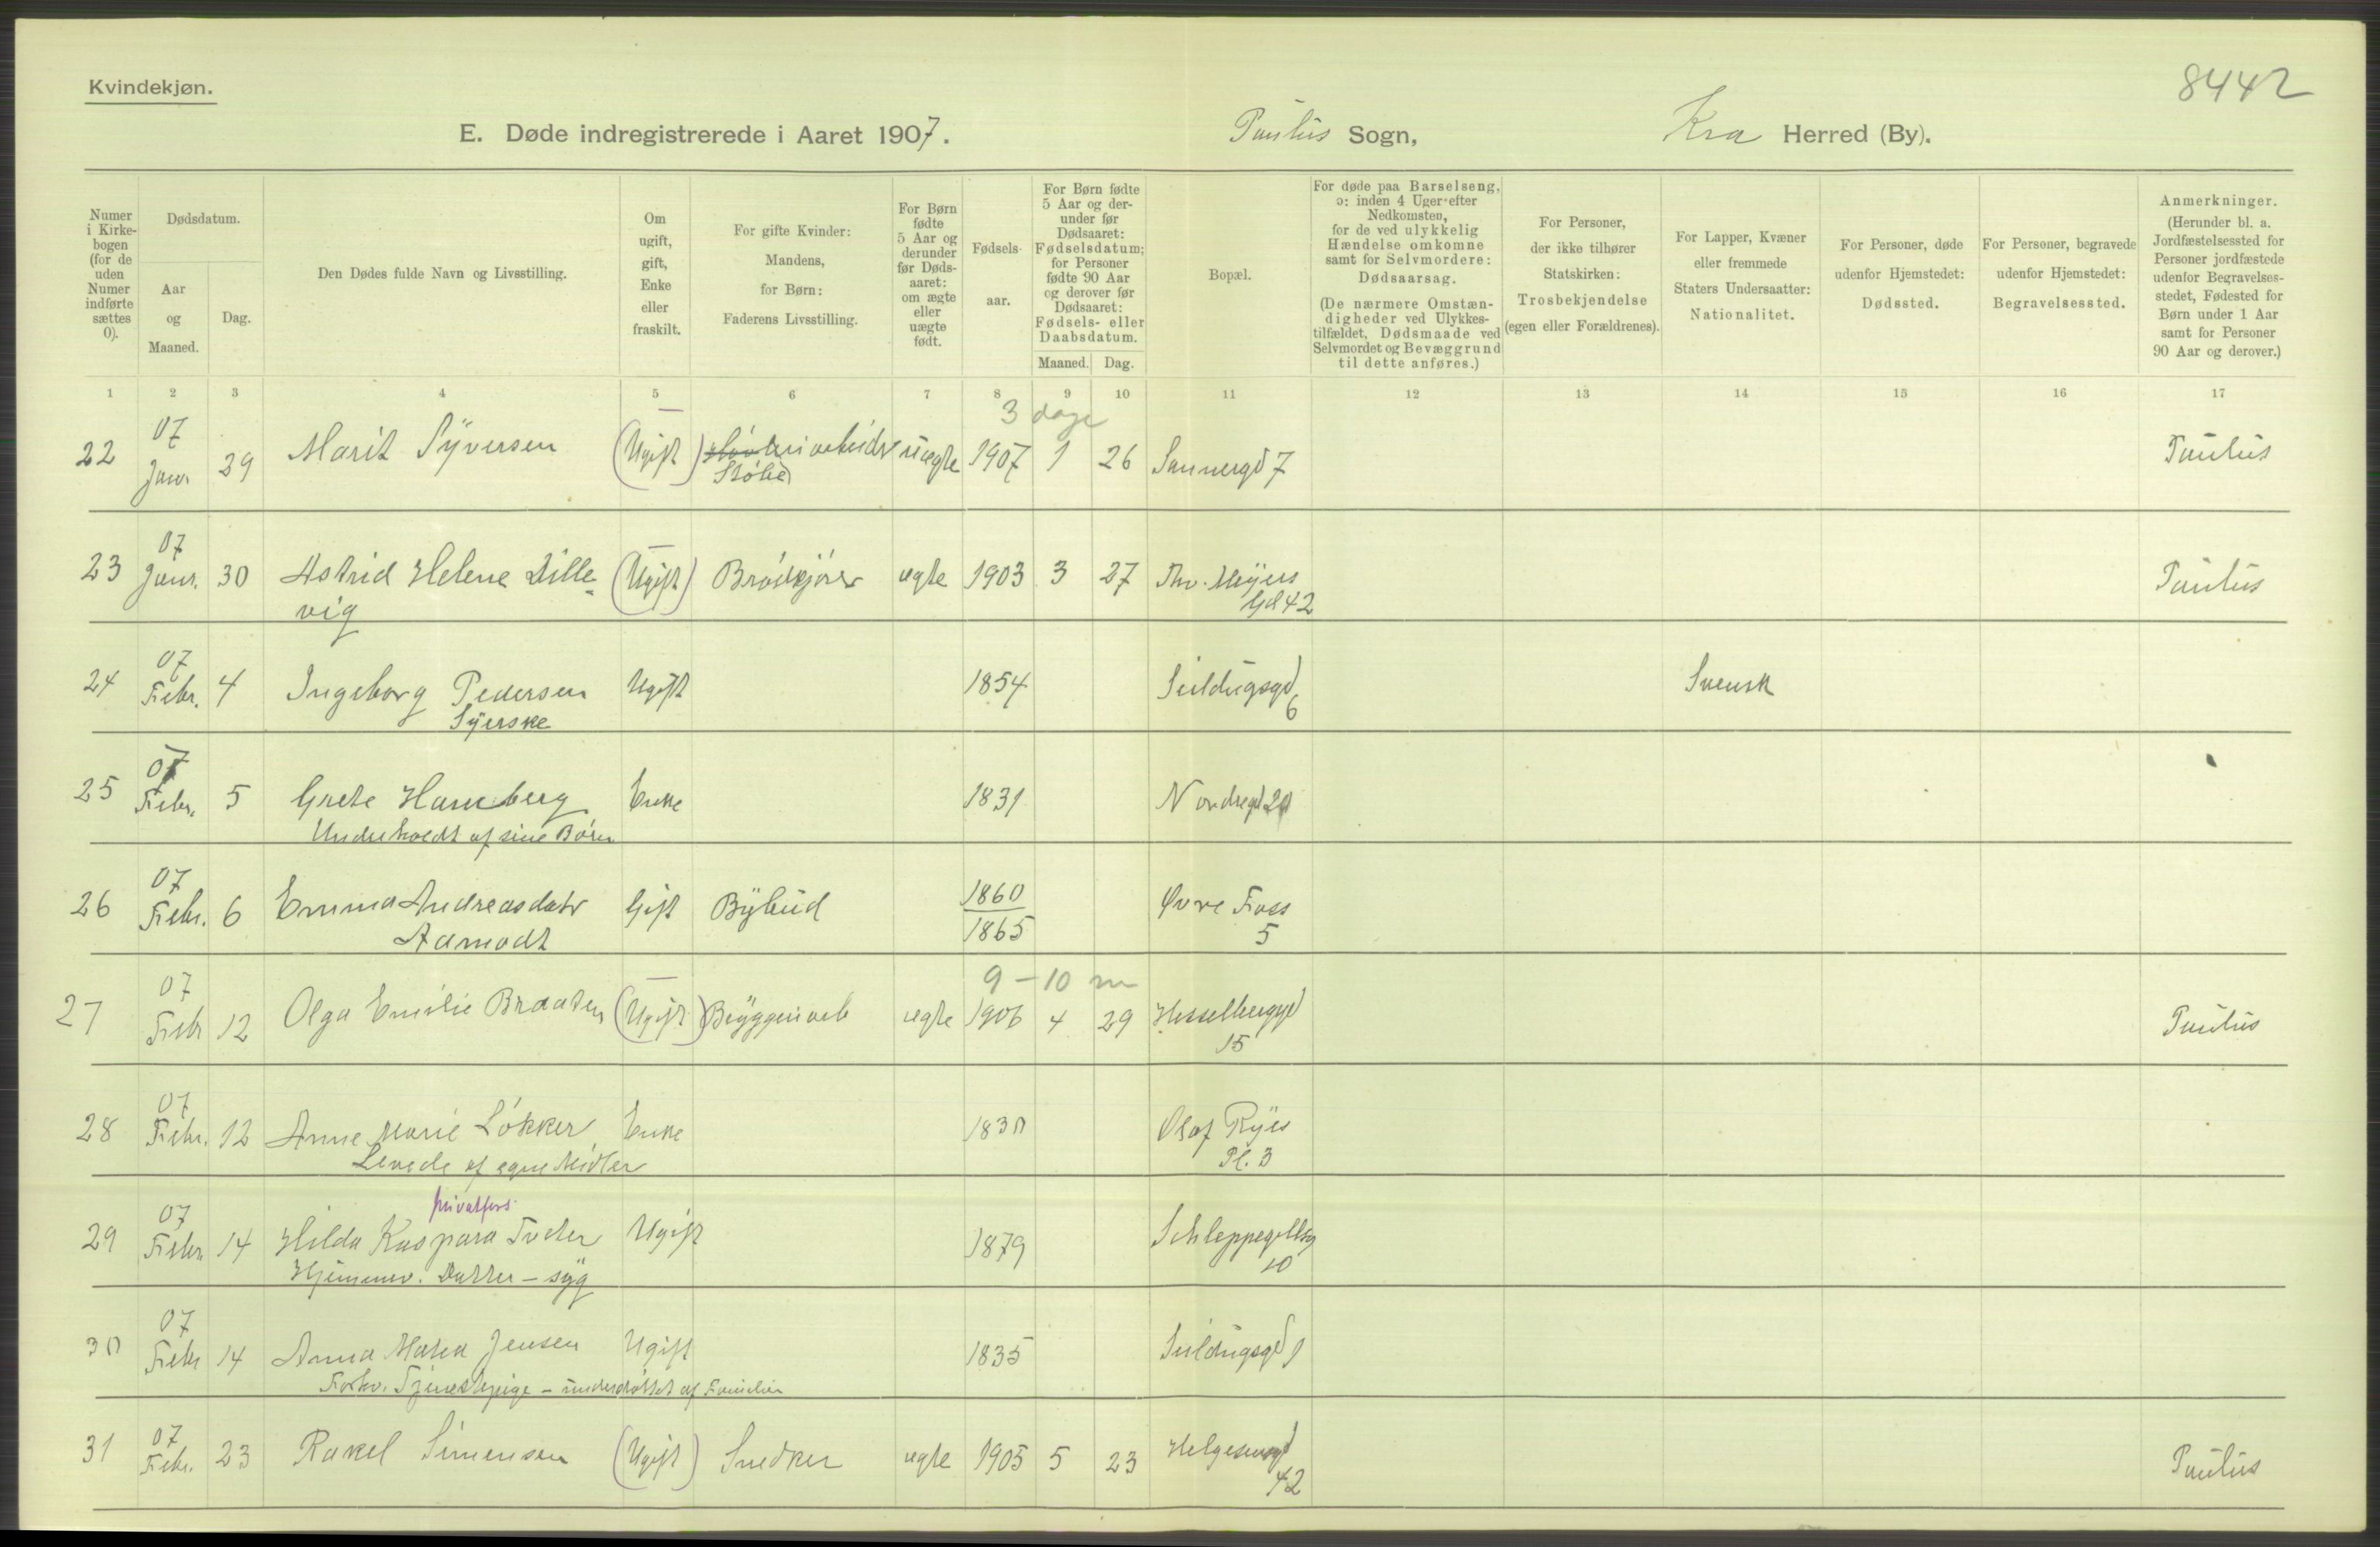 Kvindekjøn.
8442
E. Døde indregistrerede i Aaret 1907. Paulus Sogn, Kra Herred (By).
Numer i Kirkebogen (for de uden Numer indførte sættes 0).
Dødsdatum.
Aar og Maaned.
Dag.
Den Dødes fulde Navn og Livsstilling.
Om ugift, gift, Enke eller fraskilt.
For gifte Kvinder: Mandens, for Børn: Faderens Livsstilling.
For Børn fødte 5 Aar og derunder før Dødsaaret: om ægte eller uægte født.
Fødselsaar.
For Børn fødte 5 Aar og derunder før Dødsaaret: Fødselsdatum; for Personer fødte 90 Aar og derover før Dødsaaret: Fødsels- eller Daabsdatum.
Maaned. Dag.
Bopæl.
For døde paa Barselseng, ɔ: inden 4 Uger efter Nedkomsten, for de ved ulykkelig Hændelse omkomne samt for Selvmordere: Dødsaarsag.
(De nærmere Omstændigheder ved Ulykkestilfældet, Dødsmaade ved Selvmordet og Bevæggrund til dette anføres.)
For Personer, der ikke tilhører Statskirken: Trosbekjendelse (egen eller Forældrenes).
For Lapper, Kvæner eller fremmede Staters Undersaatter: Nationalitet.
For Personer, døde udenfor Hjemstedet: Dødssted.
For Personer, begravede udenfor Hjemstedet: Begravelsessted.
Anmerkninger.
(Herunder bl. a. Jordfæstelsessted for Personer jordfæstede udenfor Begravelsesstedet, Fødested for Børn under 1 Aar samt for Personer 90 Aar og derover.)
1 2 3 4 5 6 7 8 9 10 11 12 13 14 15 16 17
3 dage
22 07 Janr. 29 Marit Syversen (Ugift) arbeider uægte 1907 1 26 Sannergd 7 Paulus
Støberi
23 07 Janr. 30 Astrid Helene Dille- (Ugift) Brødkjører ægte 1903 3 27 Thv. Meyers Paulus
vig
Gd 42
24 07 Febr. 4 Ingeborg Pedersen Ugift 1854 Seildugsgd Svensk
Syerske
6
25 07 Febr. 5 Grete Hamberg Enke 1831 Nordregd 20
Underholdt af sine Børn
26 07 Febr. 6 Emma Andreasdatr Gift Bybud 1860 Øvre Foss
Aamodt
1865
5
9 - 10 m
27 07 Febr 12 Olga Emilie Braaten (Ugift) Bryggeriarb ægte 1906 4 29 Hesselbergsgd Paulus
15
28 07 Febr. 12 Anne Marie Løkker Enke 1830 Olaf Ryes
Levede af egne Midler
Pl. 3
privatfors.
29 07 Febr. 14 Hilda Kaspara Tveter Ugift 1879 Schleppegrellsg
Hjemmev. Datter - syg
10
30 07 Febr 14 Anna Maria Jensen Ugift 1835 Seildugsgd 1
Forhv. Tjenestepige - understøttet af Familien
31 07 Febr. 23 Rakel Simensen (Ugift) Snedker ægte 1905 5 23 Helgesensgd Paulus
42